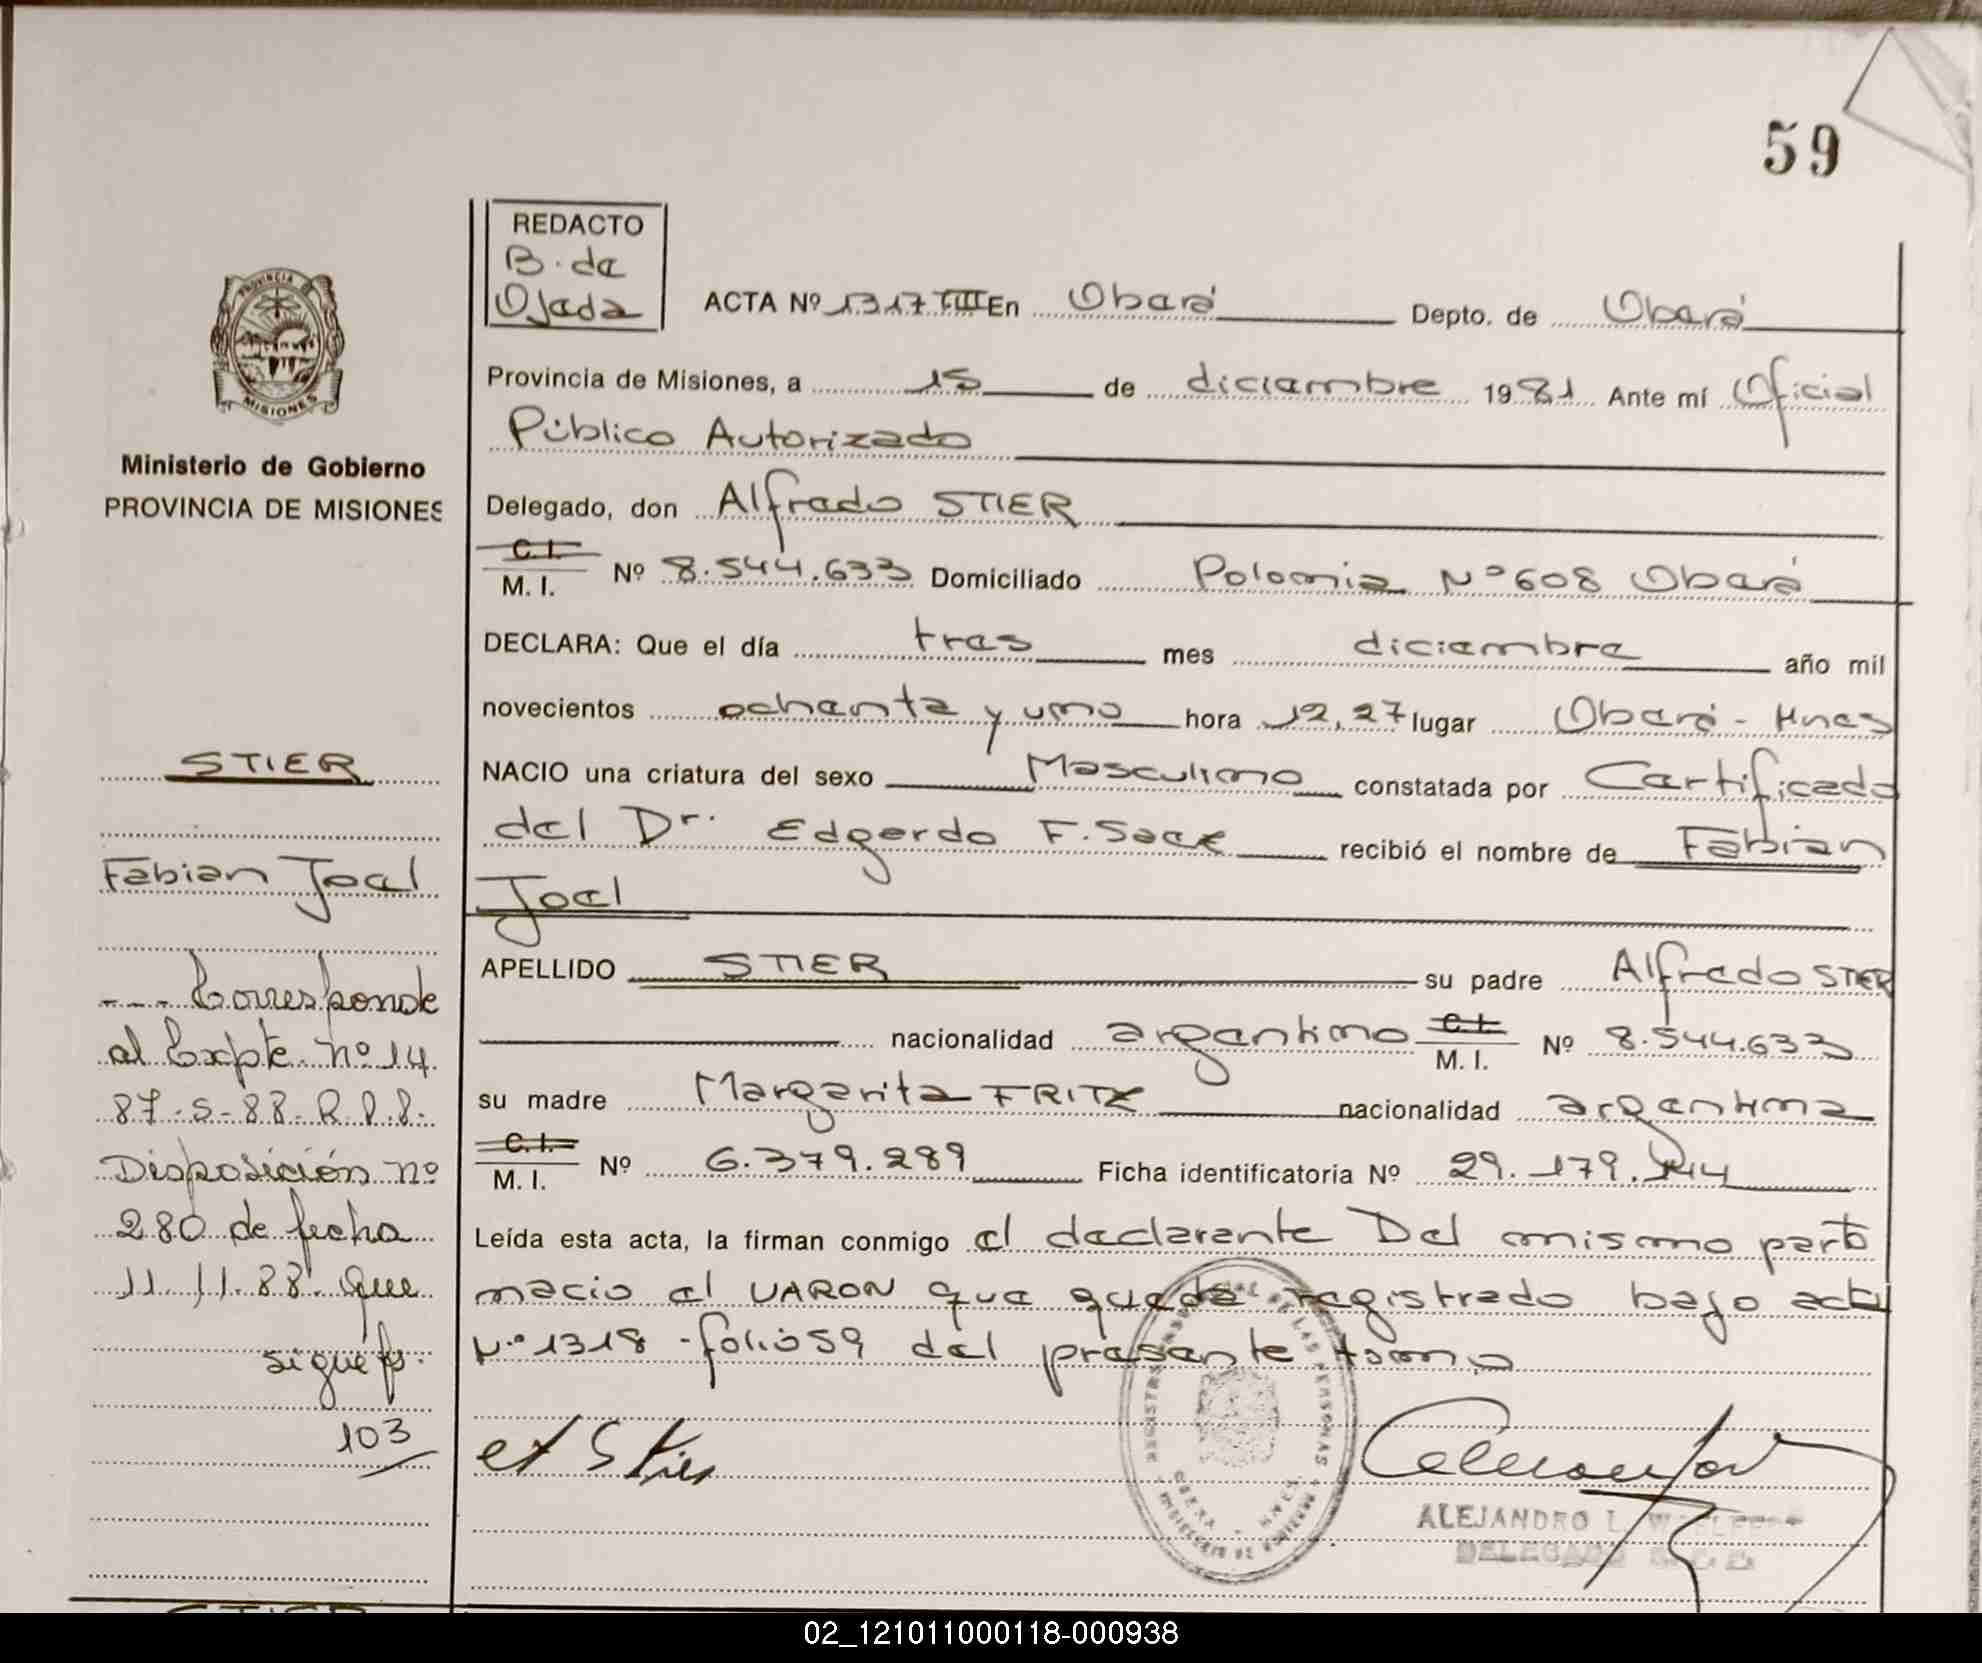 59
REDACTO
B. de
Ojeda
ACTA Nº 1317 TIII En Oberá Depto. de Oberá
PROVINCIA
MISIONES
Provincia de Misiones, a 15 de diciembre 1981 Ante mí Oficial
Público Autorizado
Ministerio de Gobierno
PROVINCIA DE MISIONES
Delegado, don Alfredo STIER
C. I.
M. I. Nº 8.544.633 Domiciliado Polonia Nº 608 Oberá
DECLARA: Que el día tres mes diciembre año mil
novecientos ochenta y uno hora 12,27 lugar Oberá - Mnes
STIER
NACIO una criatura del sexo Masculino constatada por Certificado
del Dr. Edgardo F. Sack recibió el nombre de Fabian
Fabian Joel
Joel
APELLIDO STIER su padre Alfredo STIER
nacionalidad argentino C. I. M. I. Nº 8.544.633
su madre Margarita FRITZ nacionalidad argentina
C. I.
M. I. Nº 6.379.289 Ficha identificatoria Nº 29.179.144
Leída esta acta, la firman conmigo el declarante Del mismo parto
nacio el VARON que queda registrado bajo acta
Nº 1318 - folio 59 del presente tomo
--- Corresponde
al Expte nº 14
87-S-88-R.P.P.
Disposición nº
280 de fecha
11.11.88 que
sigue fs.
103
ALEJANDRO L.
DELEGADO
STIER
02_121011000118-000938